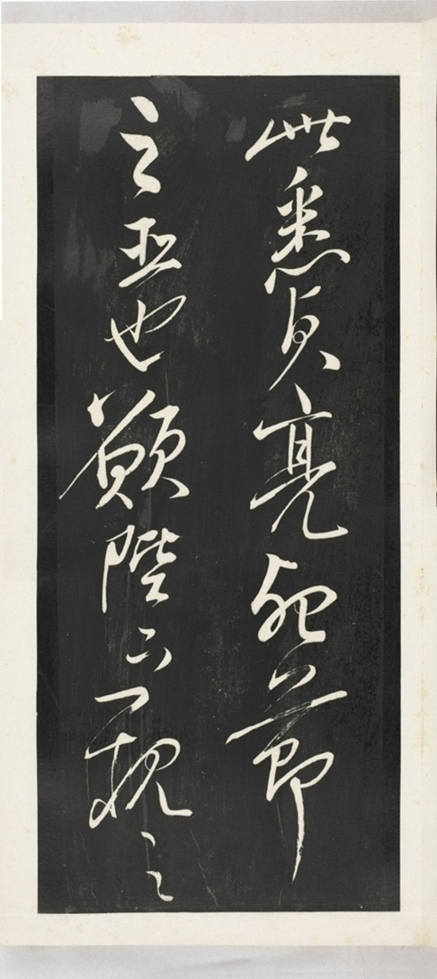 此悉貞亮死節
之臣也願陛下親之